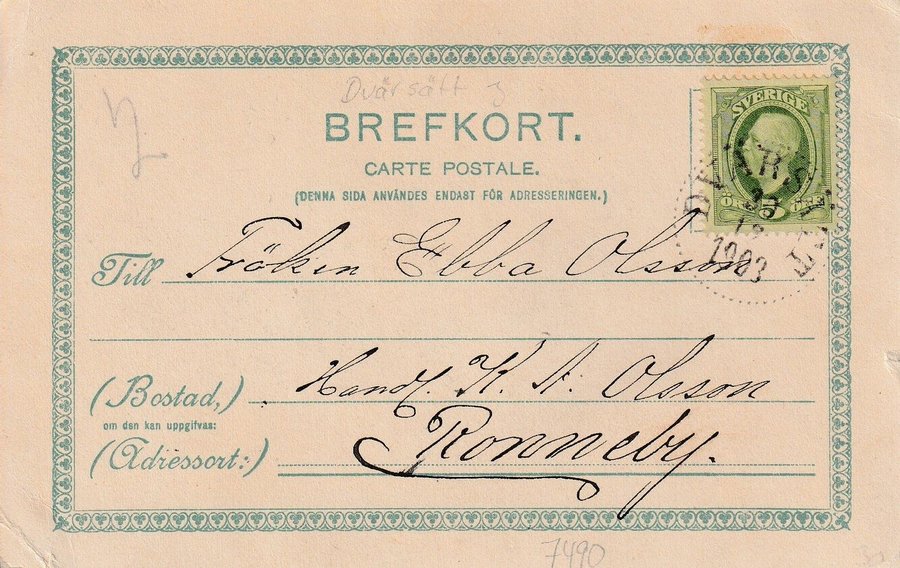 Dvärsätt
BREFKORT.
CARTE POSTALE.
(DENNA SIDA ANVÄNDES ENDAST FÖR ADRESSERINGEN.)
SVERIGE
ÖRE 5 ÖRE
DVÄRSÄTT
1903
Till Fröken Ebba Olsson
(Bostad,) Handl. K. A. Olsson
om den kan uppgifvas:
(Adressort:) Ronneby.
7490